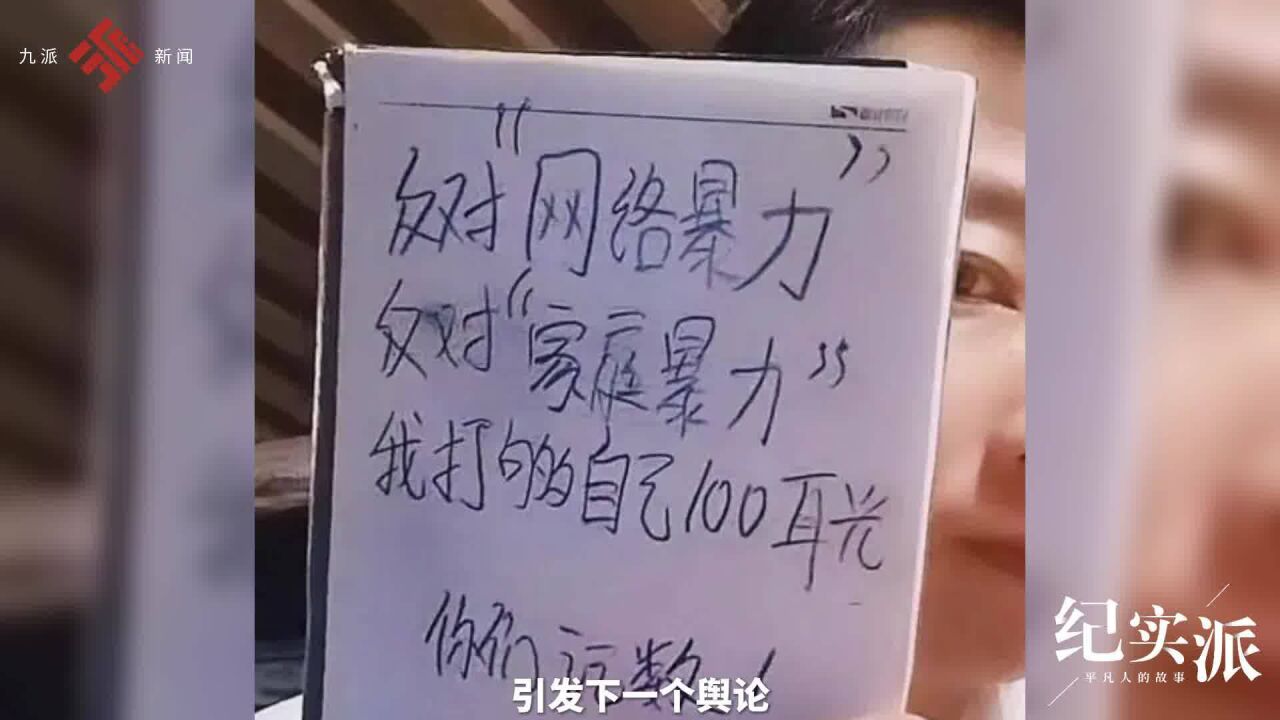 九派 新闻
反对“网络暴力”
反对“家庭暴力”
我打够自己100耳光
你们 数
引发下一个舆论
纪实派
平凡人的故事